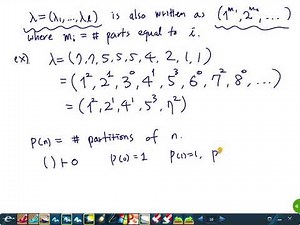 λ = (λ₁, ..., λₗ) is also written as (1^m₁, 2^m₂, ...)
where mᵢ = # parts equal to i.
ex) λ = (7,7,5,5,5,4,2,1,1)
= (1², 2¹, 3⁰, 4¹, 5³, 6⁰, 7², 8⁰, ...)
= (1², 2¹, 4¹, 5³, 7²)
p(n) = # partitions of n.
() ⊢ 0 p(0) = 1 p(1) = 1, p